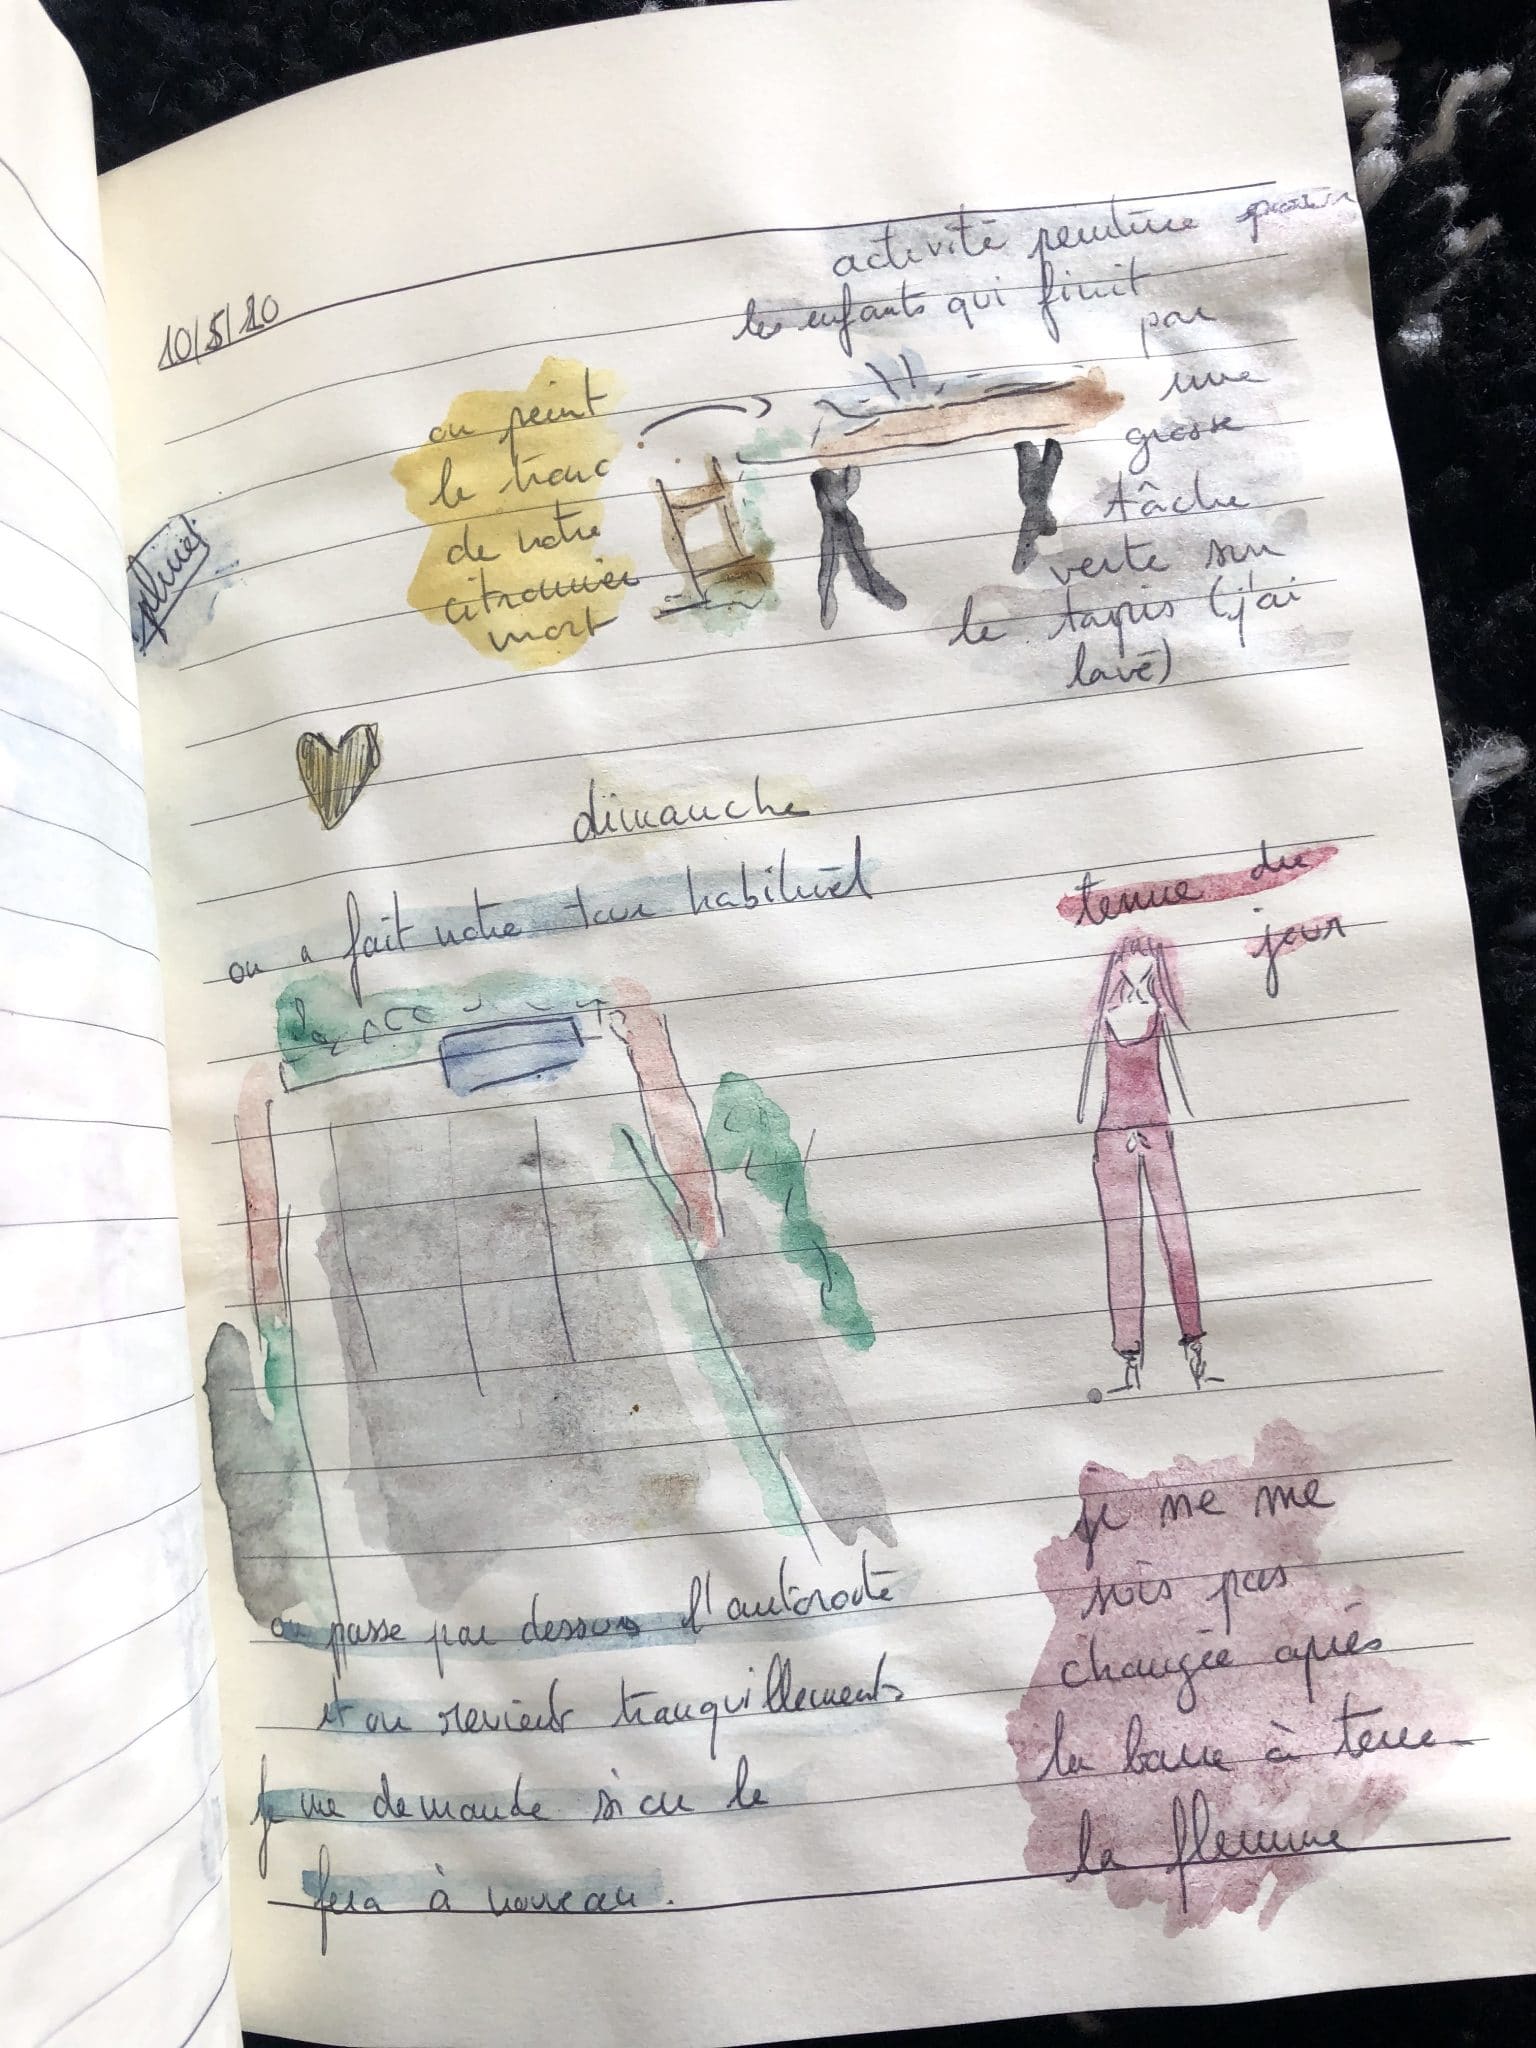 10/5/20
activité peinture pour
les enfants qui finit
par
une
grosse
tâche
verte sur
le tapis (j'ai
lavé)
on peint
le tronc
de notre
citronnier
mort
pluies
dimanche
on a fait notre tour habituel
tenue du
jour
on passe par dessus l'autoroute
et on revient tranquillements
je me demande si on le
fera à nouveau.
je ne me
sois pas
changée après
la barre à terre
la flemme